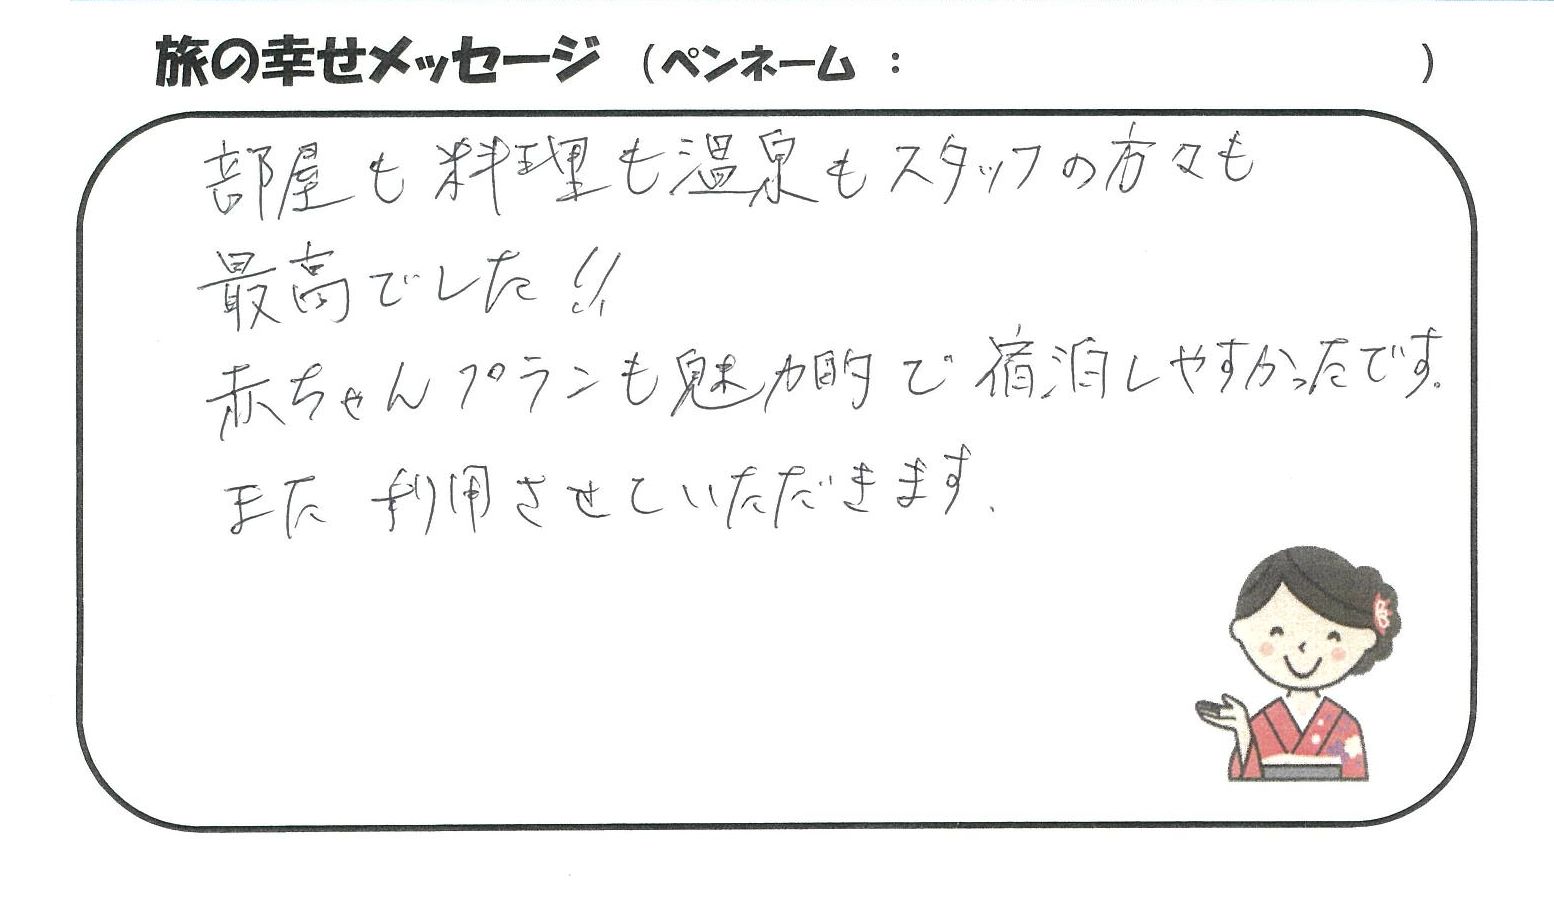 旅の幸せメッセージ (ペンネーム : )
部屋も料理も温泉もスタッフの方々も
最高でした!!
赤ちゃんプランも魅力的で宿泊しやすかったです。
また利用させていただきます。